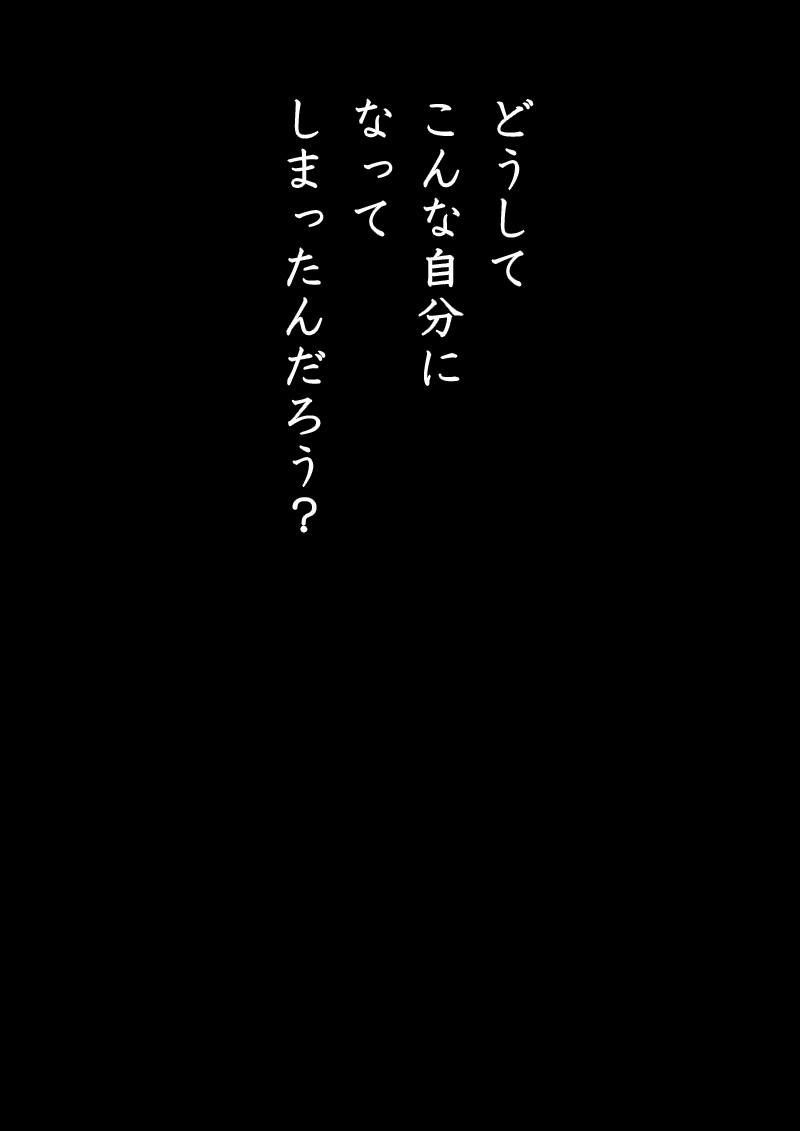 どうして
こんな自分に
なって
しまったんだろう?